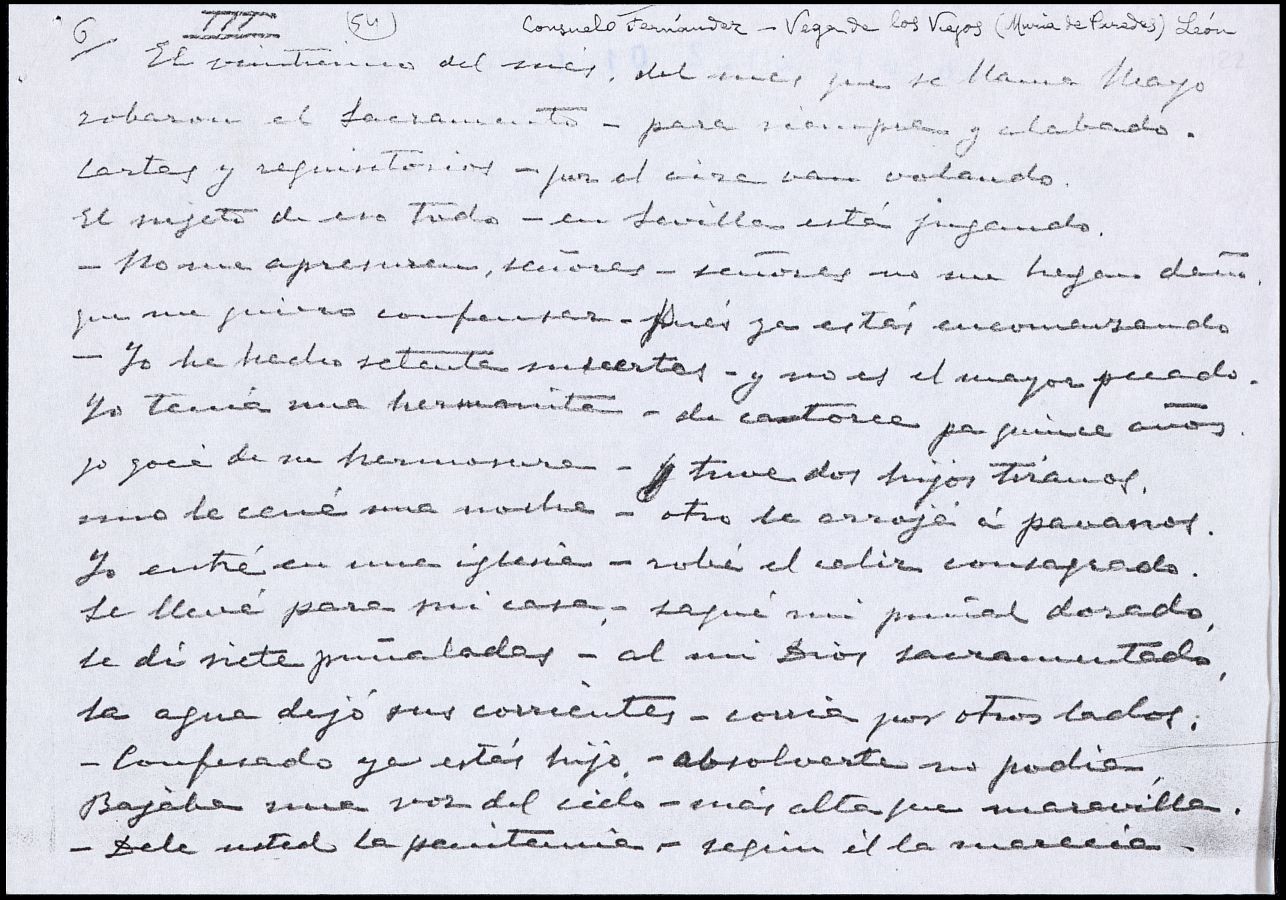 6 III (54) Consuelo Fernández - Vega de los Viejos (Muria de Paredes) León
El veinticinco del mes, del mes que se llama Mayo
robaron el Sacramento - para siempre y alabado.
Cartas y requisitorios - por el aire van volando.
El sujeto de eso todo - en Sevilla está jugando.
- No me apresuren, señores - señores no me hagan daño,
que me quiero confensar - Pués ya estás encomenzando
- Yo he hecho setenta muertes - y no es el mayor pecado.
Yo tenía una hermanita - de catorce pa quince años.
yo gocé de su hermosura - y tuve dos hijos tiranos,
uno le cené una noche - otro le arrojé a pavanos.
Yo entré en una iglesia - robé el caliz consagrado.
Le llevé para mi casa, - saqué mi puñal dorado,
le di siete puñaladas - al mi Dios sacramentado,
la agua dejó sus corrientes - corría por otros lados;
- Confesado ya estás hijo, - absolverte no podía,
Bajaba una voz del cielo - más alta que maravilla.
- Dele usted la penitencia, - según él la merecía.